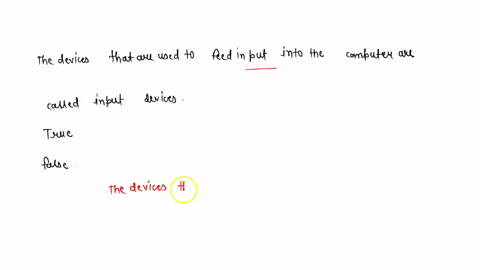 The devices that are used to feed input into the computer are
called input devices.
True
false.
The devices th